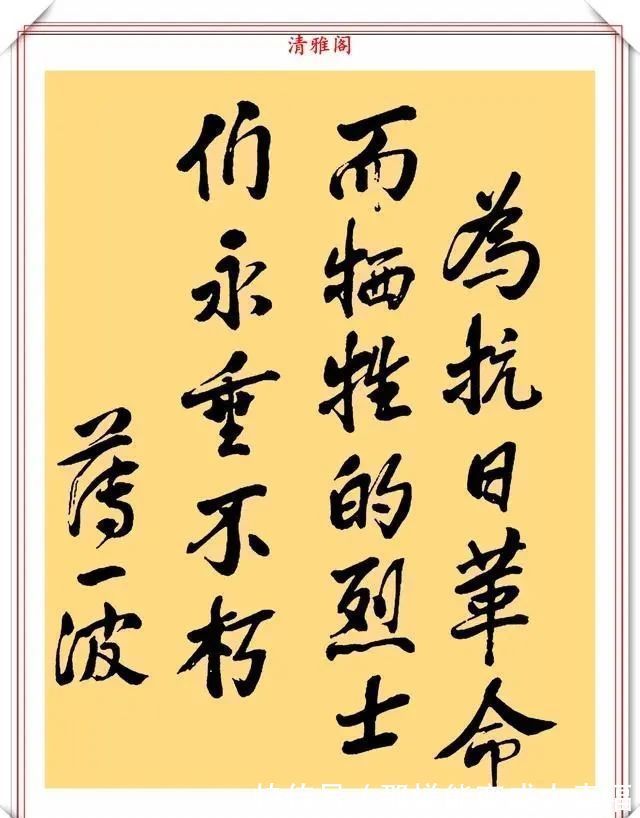 清雅阁
為抗日革命
而牺牲的烈士
们永垂不朽
薄一波